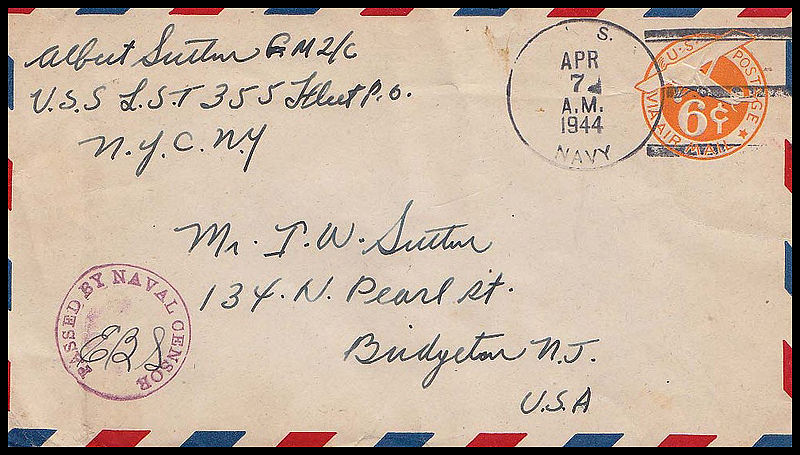 Albert Sutton GM2/C
U.S.S L.S.T 355 Fleet P.O.
N.Y.C. N.Y
S.
APR
7
A.M.
1944
NAVY
U.S. POSTAGE
6¢
VIA AIR MAIL
Mr. I. W. Sutton
134. N. Pearl St.
Bridgeton N.J.
U.S.A
PASSED BY NAVAL CENSOR
EBS